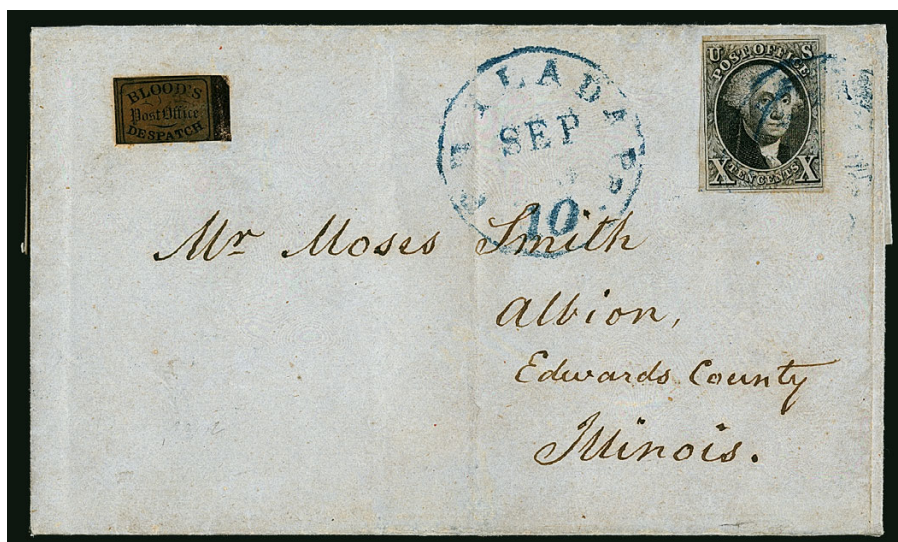 BLOOD'S
Post Office
DESPATCH
SEP
10
U S
POST OFFICE
X TEN CENTS X
Mr Moses Smith
Albion,
Edwards County
Illinois.